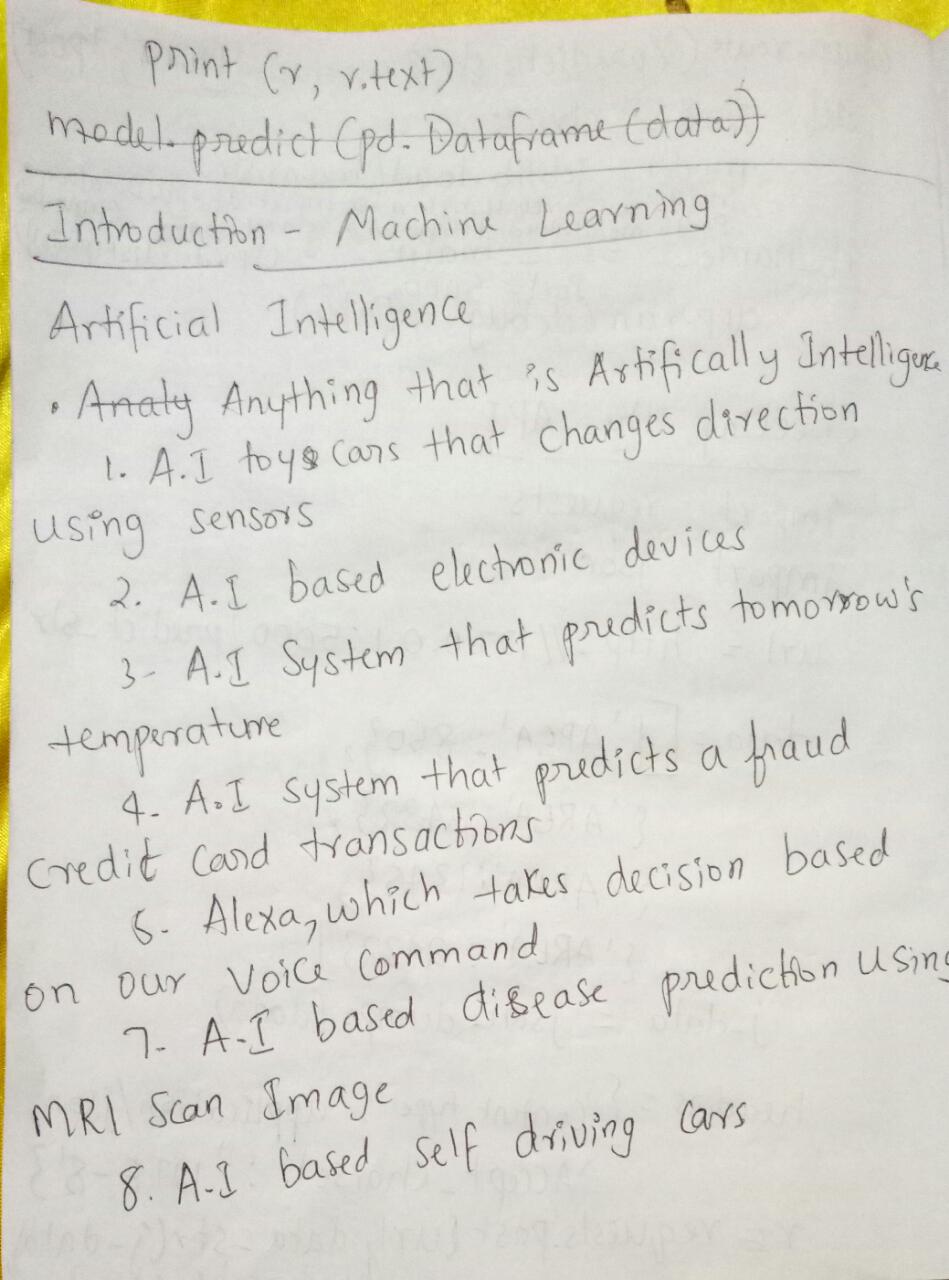 print (r, r.text)
model.predict (pd.Dataframe (data))
Introduction - Machine Learning
Artificial Intelligence
• Analy Anything that is Artifically Intelligence
1. A.I toys cars that changes direction
using sensors
2. A.I based electronic devices
3- A.I System that predicts tomorrow's
temperature
4- A.I system that predicts a fraud
Credit Card transactions
6- Alexa, which takes decision based
on our Voice Command
7- A-I based disease prediction using
MRI Scan Image
8. A-I based self driving cars